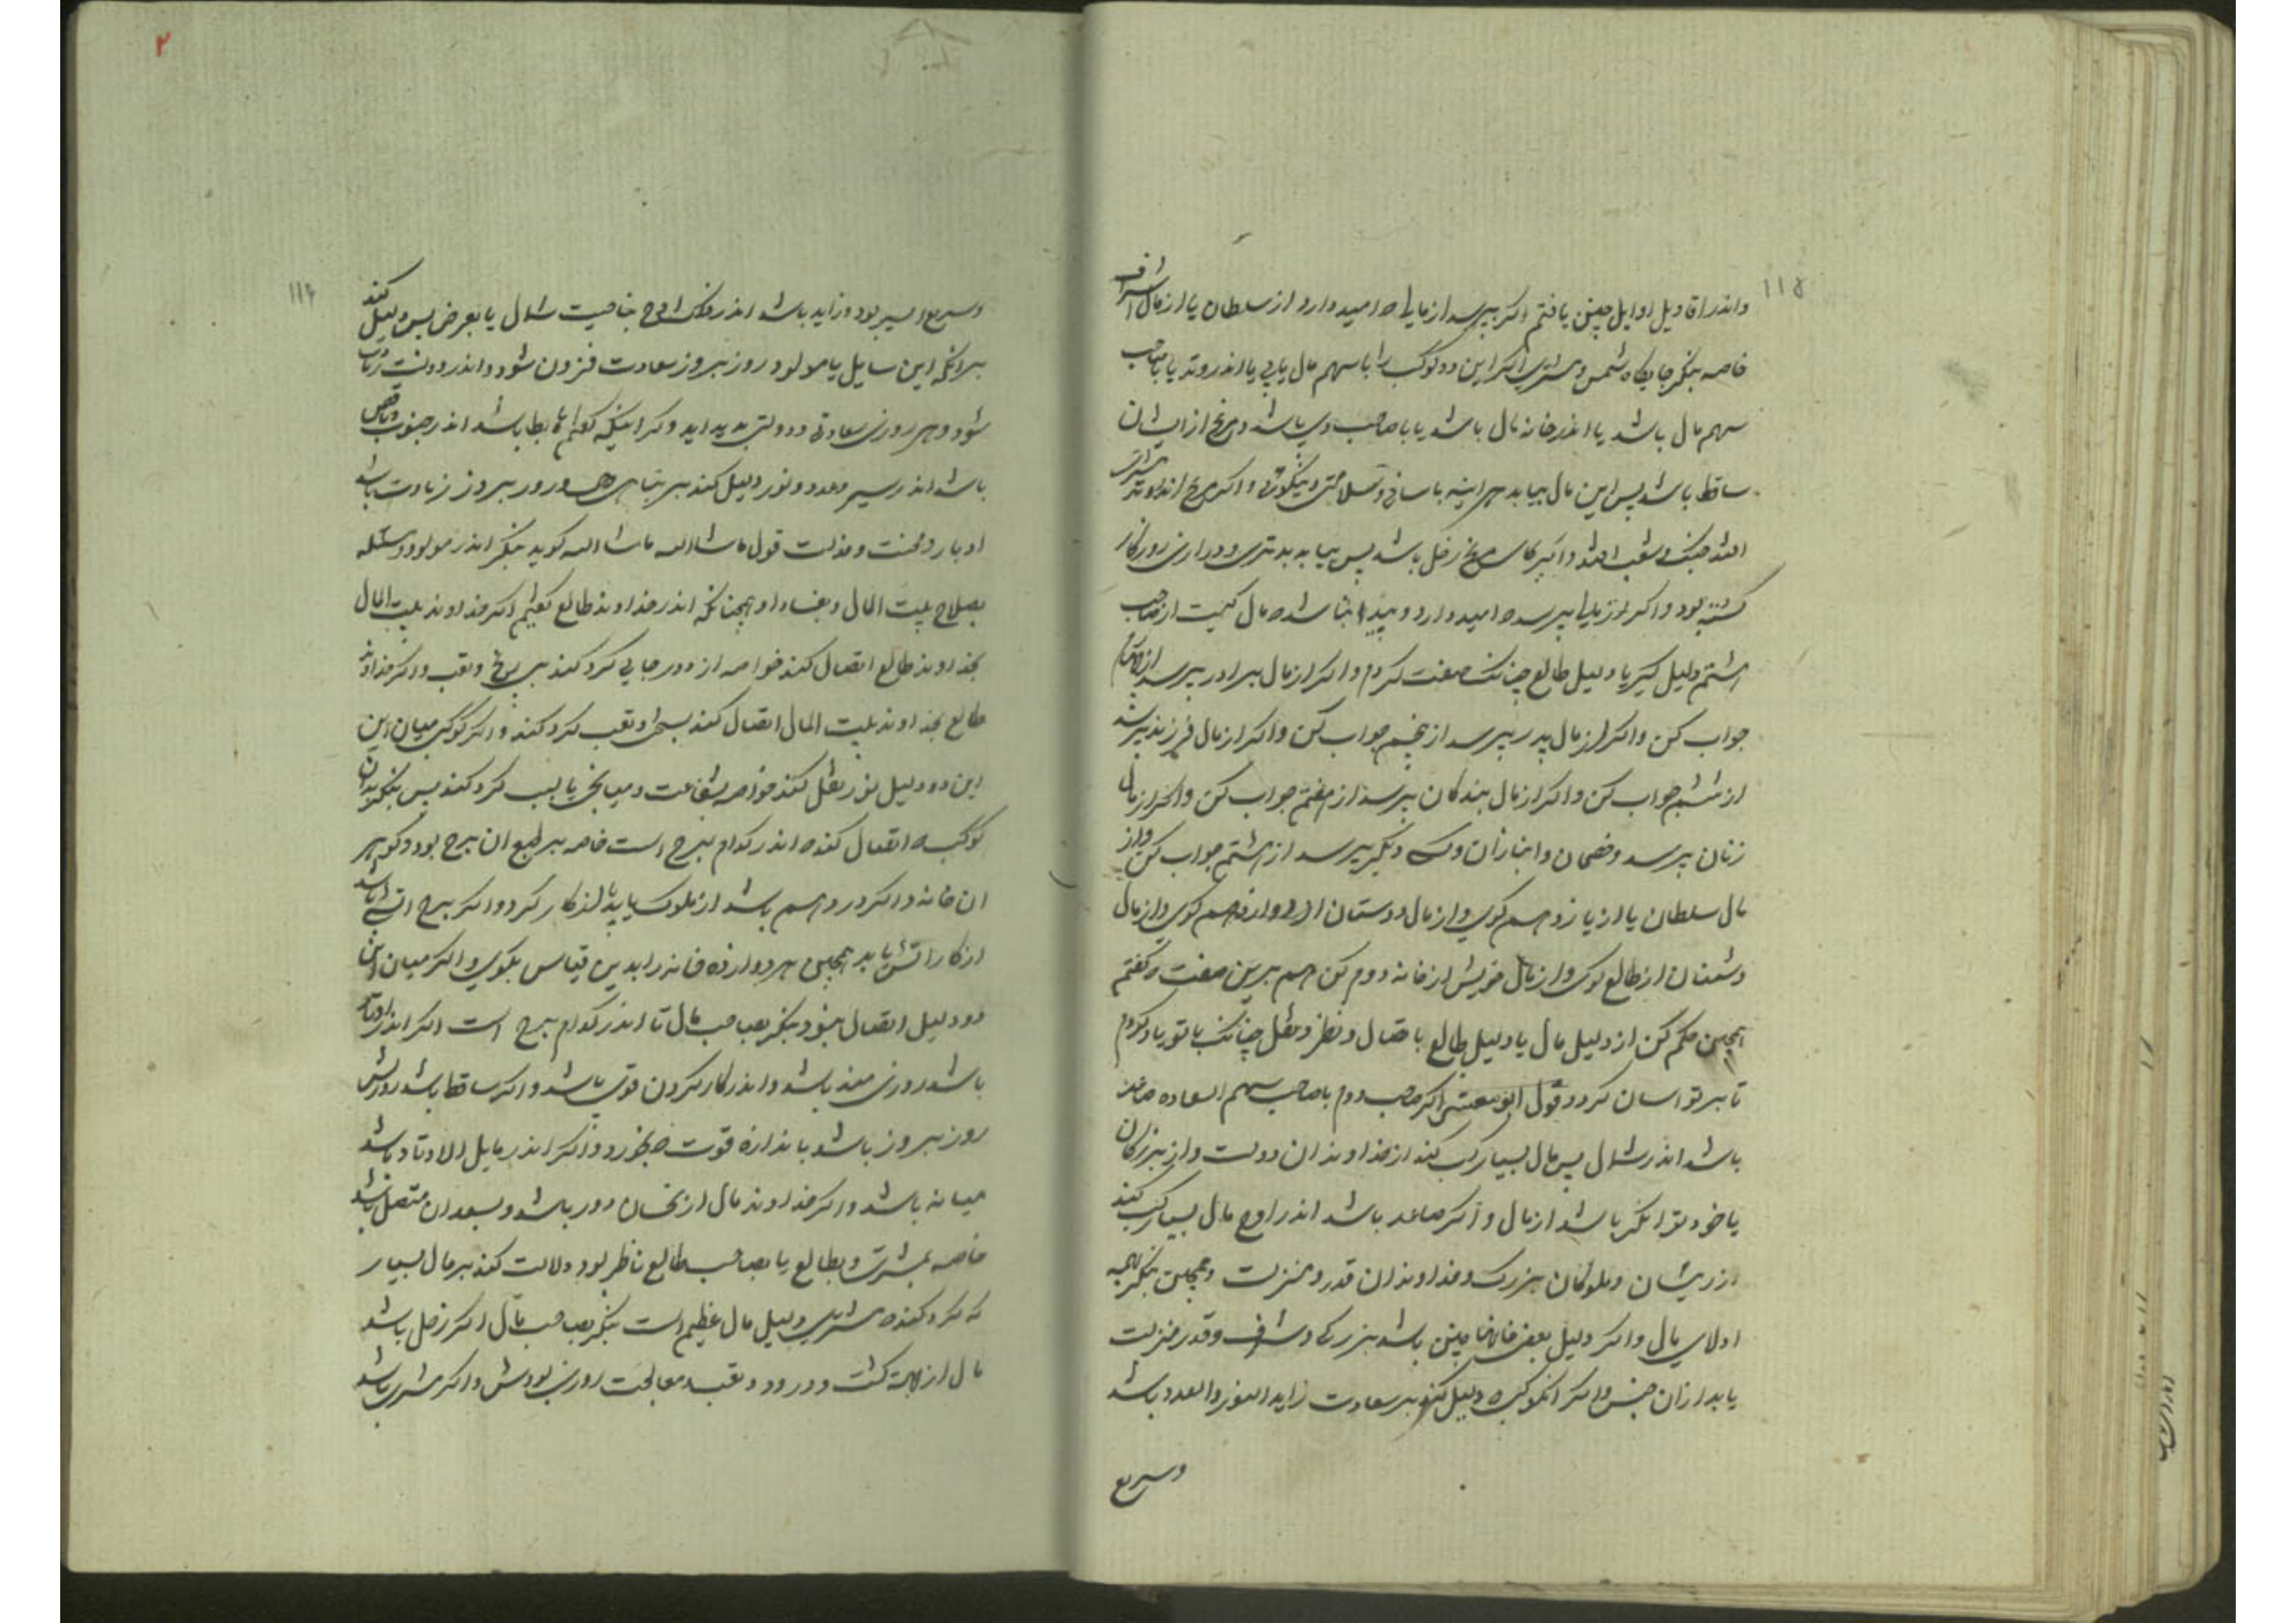 ۱۱۵
واندر اقاویل اوایل چنین یافتم اکر بپرسد از مالی که امید دارد از سلطان یا از مال اشراف
خاصه بنکر جایکاه شمس و مشتری اکر این دو کوکب را با سهم مال یابی یا اندر وتد یا با صاحب
سهم مال باشد یا اندر خانه مال باشد یا با صاحب وی باشد و مریخ از ایشان
ساقط باشد پس این مال بیابد هراینه باسانی و سلامتی و نیکوئی و اکر مریخ اندر وتد
افتد جنک و شغب افتد و اکر بجای مریخ زحل باشد پس بیابد بدتری و درازی روزکار
کشته بود و اکر از مالی بپرسد که امید دارد و پیدا نباشد که مال کیست از صاحب
هشتم دلیل کیر یا دلیل طالع چنانک صفت کردم و اکر از مال برادر بپرسد از چهارم
جواب کن و اکر از مال پدر بپرسد از پنجم جواب کن و اکر از مال فرزند بپرسد
از ششم جواب کن و اکر از مال بندکان بپرسد از هفتم جواب کن و اکر از مال
زنان بپرسد و خصمان و انبازان و کسی دیکر بپرسد از هشتم جواب کن و از
مال سلطان یا از یازدهم کوی و از مال دوستان از دوازدهم کوی و از مال
دشمنان از طالع کوی و از مال خویش از خانه دوم کن هم برین صفت که کفتم
همچنین حکم کن از دلیل مال یا دلیل طالع باتصال و نظر و نقل چنانک با تو یاد کردم
تا بر تو اسان کردد قول ابو معشر اکر صاحب دوم با صاحب سهم السعاده صاعد
باشد اندر شمال پس مال بسیار کسب کند از خداوندان دولت و از بزرکان
یا خود توانکر باشد از مال و اکر صاعد باشد اندر اوج مال بسیار کسب کند
از رئیسان و ملوکان بزرک و خداوندان قدر و منزلت و همچنین بنکر
اولای مال و اکر دلیل بعض خانها چنین باشد بزرکی و شرف و قدر و منزلت
یابد از آن جنس و اکر انکوکب که دلیل کند بر سعادت زاید النور و العدد باشد
وسریع
۲
۱۱۶
وسریع السیر بود و زاید باشد اندر فلک اوج بناحیت شمال یا بعرض پس دلیل کند
برانکه این سایل یا مولود روز بروز سعادت فزون شود و اندر دولت زیادت
شود و هر روزی سعادتی و دولتی پدید اید و کر اینکه کفتم هابط باشد اندر جنوب و ناقص
باشد اندر سیر و عدد و نور دلیل کند بر تباهی و هر روز بروز زیادت باشد
ادبار و محنت و مذلت قول ماشاالله ماشاالله کوید بنکر اندر مولود و مسئله
بصلاح بیت المال و بفساد او همچنانکه اندر خداوند طالع کفتیم اکر خداوند بیت المال
بخداوند طالع اتصال کند خواسته از دور جایی کرد کند بی رنج و تعب و اکر خداوند
طالع بخداوند بیت المال اتصال کند بسختی و تعب کرد کند و اکر کوکبی میان این
این دو دلیل نور نقل کند خواسته بشفاعت و میانجی یا بسبب کرد کند پس بنکر بدان
کوکب که اتصال کند که اندر کدام برج است خاصه بر طبع ان برج بود و کوهر
ان خانه و اکر در دهم باشد از ملوک یابد یا از کار کردد و اکر برج اتشی باشد
از کار اتش یابد همچنین هر دوازده خانه را بدین قیاس بکوی و اکر میان این
دو دلیل اتصال نبود بنکر بصاحب مال تا اندر کدام برج است اکر اندر اوتاد
باشد روزی مند باشد و اندر کار کردن قوی باشد و اکر ساقط باشد روزیش
روز بروز باشد باندازه قوت که بخورد و اکر اندر مایل الاوتاد باشد
میانه باشد و اکر خداوند مال از نحسان دور باشد و بسعدان متصل باشد
خاصه بمشتری و بطالع یا بصاحب طالع ناظر بود دلالت کند بر مال بسیار
که کرد کند که مشتری دلیل مال عظیم است بنکر بصاحب مال اکر زحل باشد
مال از جهة کشت و درود و تعب و معالجت روزی بودش و اکر مشتری باشد